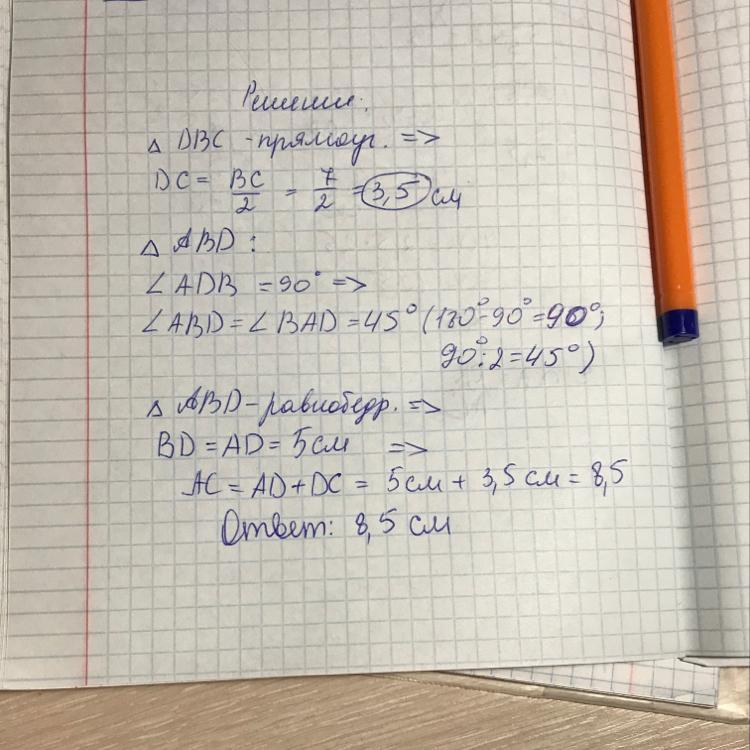 Решение.
Δ DBC - прямоуг. =>
DC = BC/2 = 7/2 = 3,5 см
Δ ABD :
∠ ADB = 90° =>
∠ ABD = ∠ BAD = 45° (180°-90°=90°;
90°:2=45°)
Δ ABD - равнобедр. =>
BD = AD = 5 см =>
AC = AD + DC = 5 см + 3,5 см = 8,5
Ответ: 8,5 см